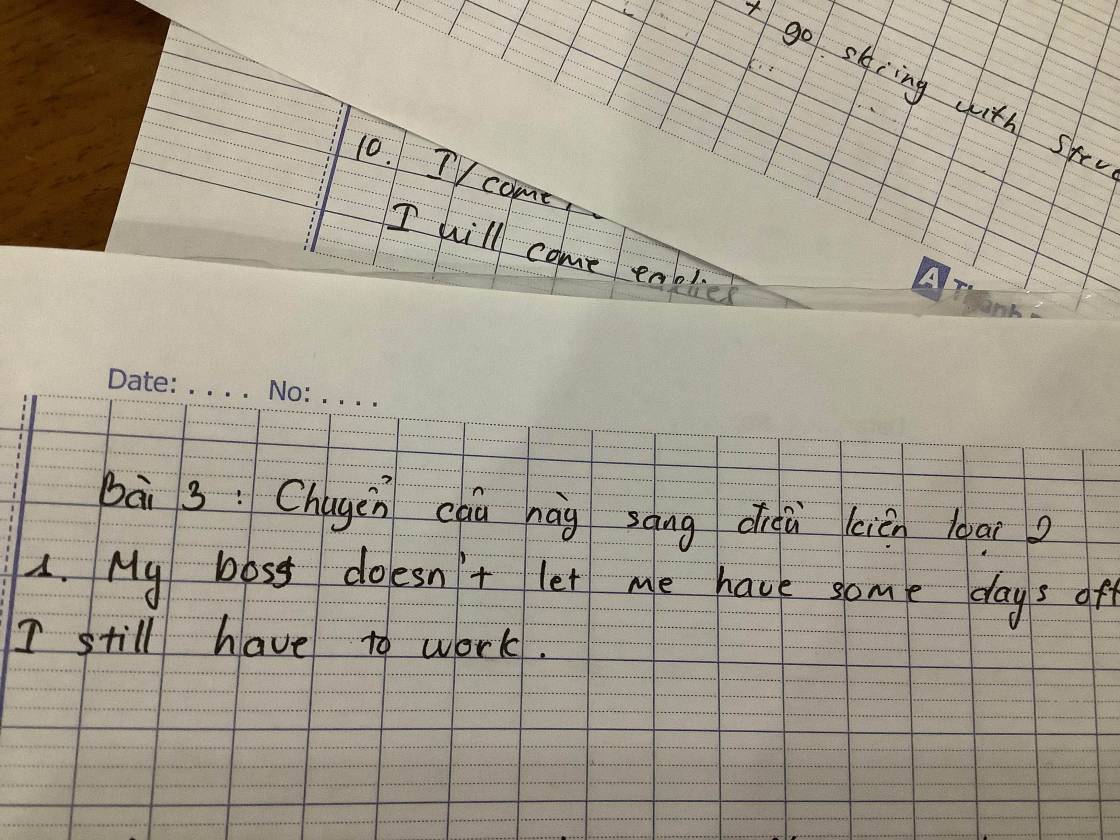 + go skiing with Steve
10. I/come
I will come earlier
A
Date: .... No: ....
Bài 3 : Chuyển câu này sang điều kiện loại 2
1. My boss doesn't let me have some days off
I still have to work.